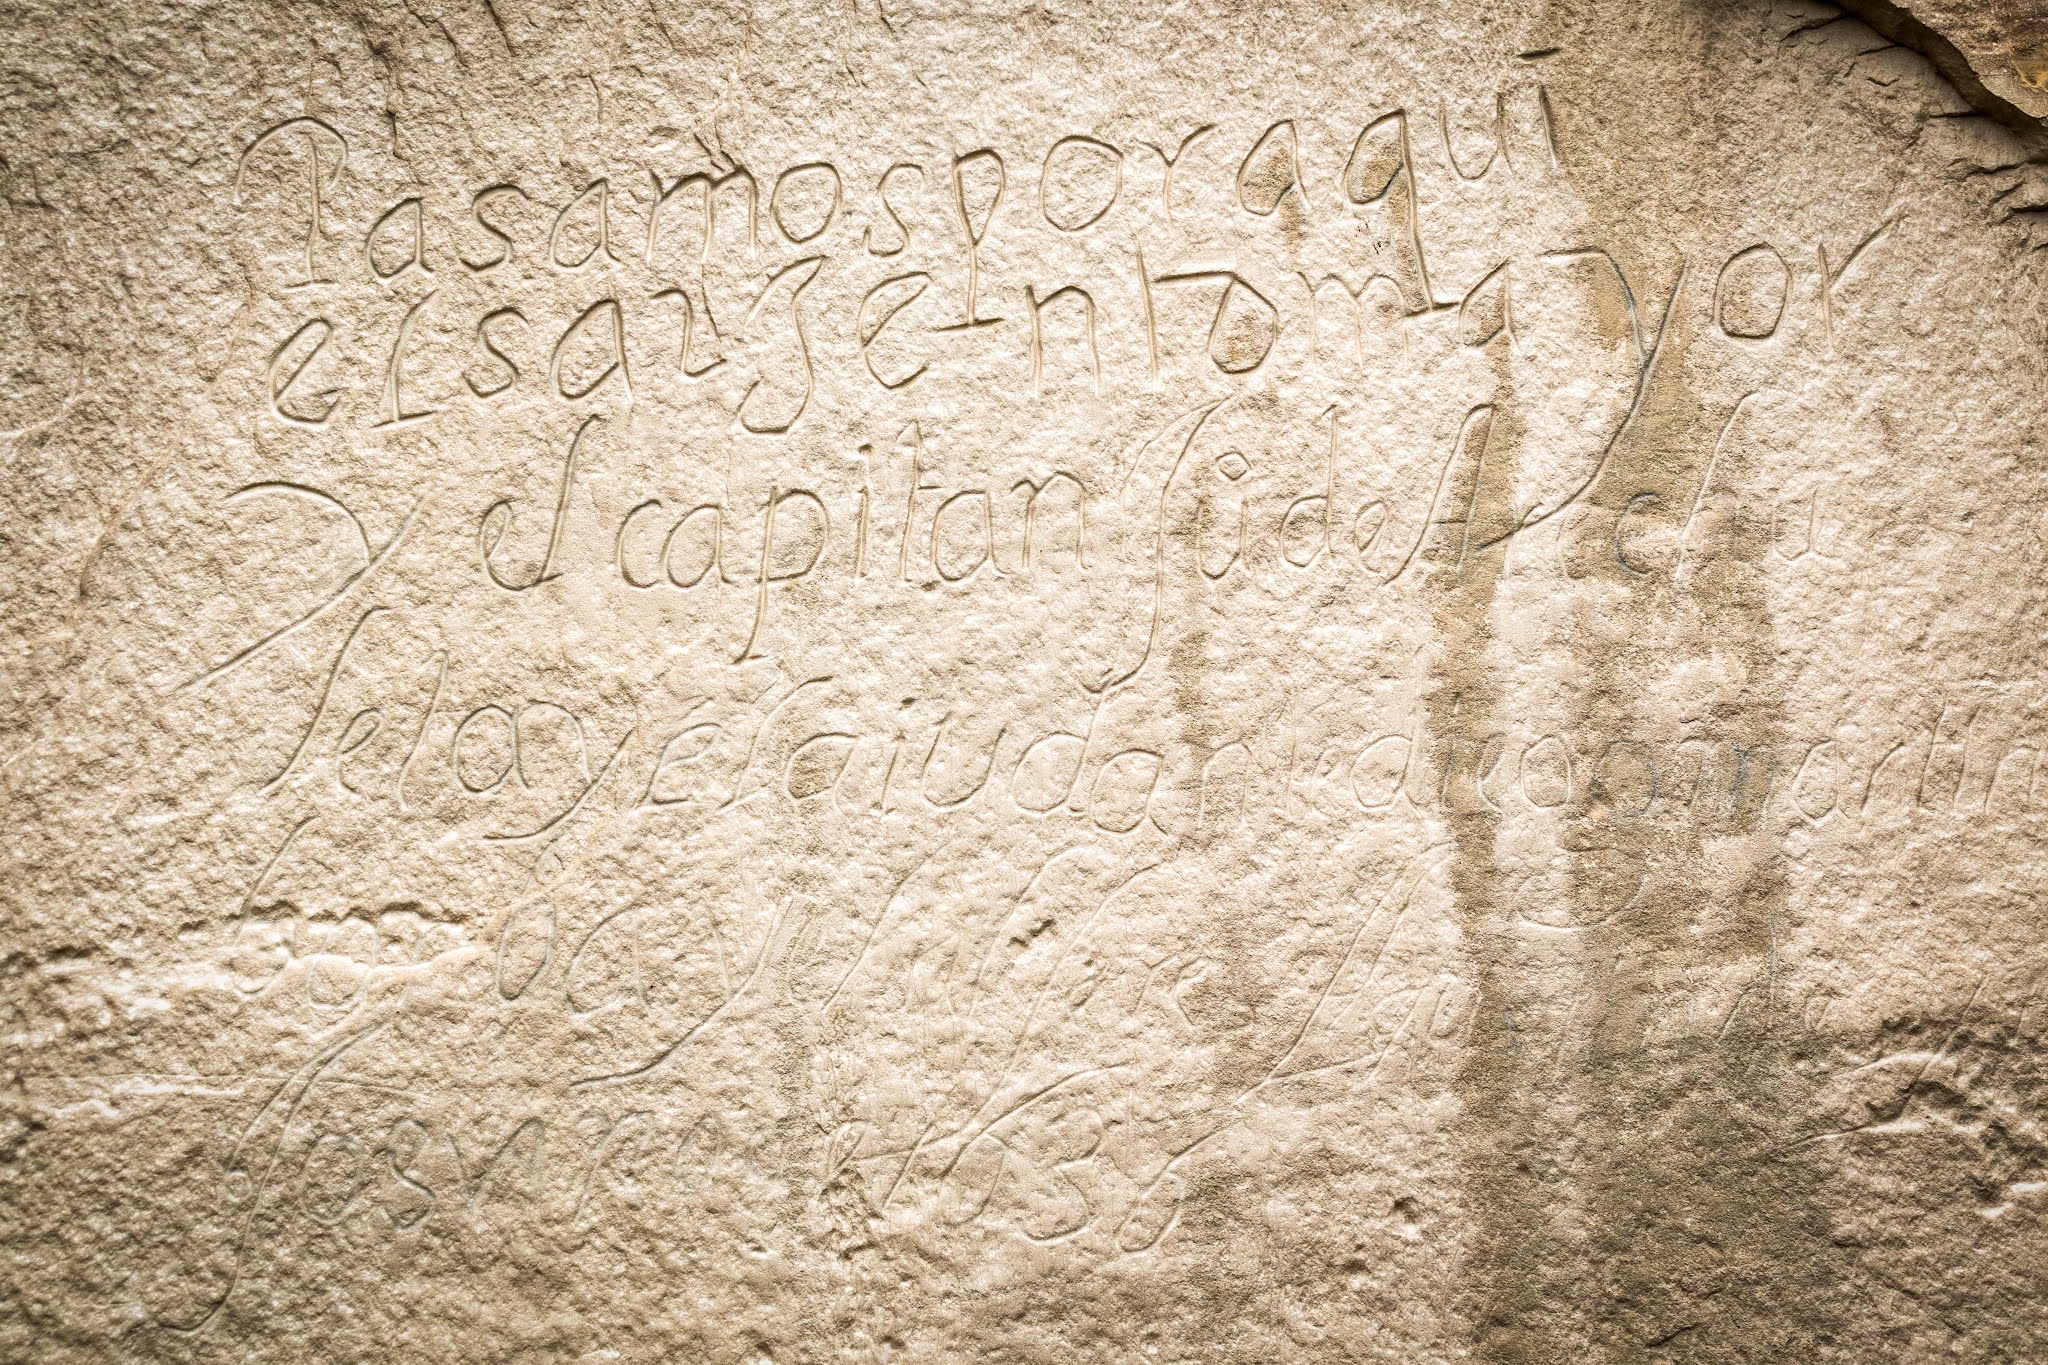 Pasamos por aqui
el sarjento mayor
y el capitan Ju° de Archu
leta y el aiudante diego martin
barba y el alferes
1636